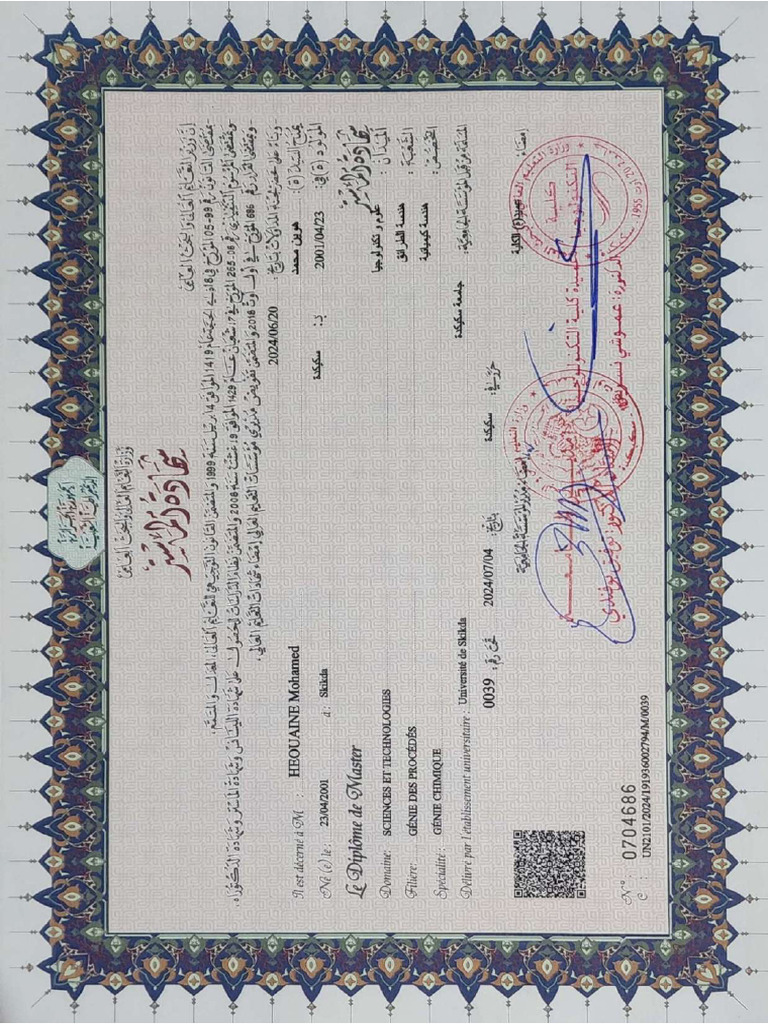 الجمهورية الجزائرية
الديمقراطية الشعبية
وزارة التعليم العالي والبحث العلمي
شهادة الماستر
إن وزير التعليم العالي والبحث العلمي
- بمقتضى القانون رقم 99-05 المؤرخ في 18 ذي الحجة عام 1419 الموافق 4 أبريل سنة 1999 والمتضمن القانون التوجيهي للتعليم العالي، المعدل والمتمم.
- وبمقتضى المرسوم التنفيذي رقم 08-265 المؤرخ في 17 شعبان عام 1429 الموافق 19 غشت سنة 2008 والمتضمن نظام الدراسات للحصول على شهادة الليسانس وشهادة الماستر وشهادة الدكتوراه.
- وبمقتضى القرار رقم 686 المؤرخ في أول أوت 2018 والمتضمن تفويض مديري مؤسسات التعليم العالي إمضاء شهادات التعليم العالي.
- وبناء على محضر لجنة المداولات بتاريخ: 2024/06/20
يمنح السيد(ة): هوين محمد
Il est décerné à M : HEOUAINE Mohamed
المولود(ة) في: 2001/04/23 بـ: سكيكدة
Né (e) le : 23/04/2001 à : Skikda
شهادة الماستر
Le Diplôme de Master
الميدان: علوم و تكنولوجيا
Domaine: SCIENCES ET TECHNOLOGIES
الشعبة: هندسة الطرائق
Filière: GÉNIE DES PROCÉDÉS
التخصص: هندسة كيميائية
Spécialité : GÉNIE CHIMIQUE
المسلمة من قبل المؤسسة الجامعية: جامعة سكيكدة
Délivré par l'établissement universitaire : Université de Skikda
حرر في: سكيكدة بتاريخ: 2024/07/04 تحت رقم: 0039
إمضاء:
عميد(ة) الكلية
إمضاء مدير المؤسسة الجامعية
عميدة كلية التكنولوجيا
الدكتورة: عموشي نسرين
N° : 0704686
C : UN2101/2024/191936002794/M/0039